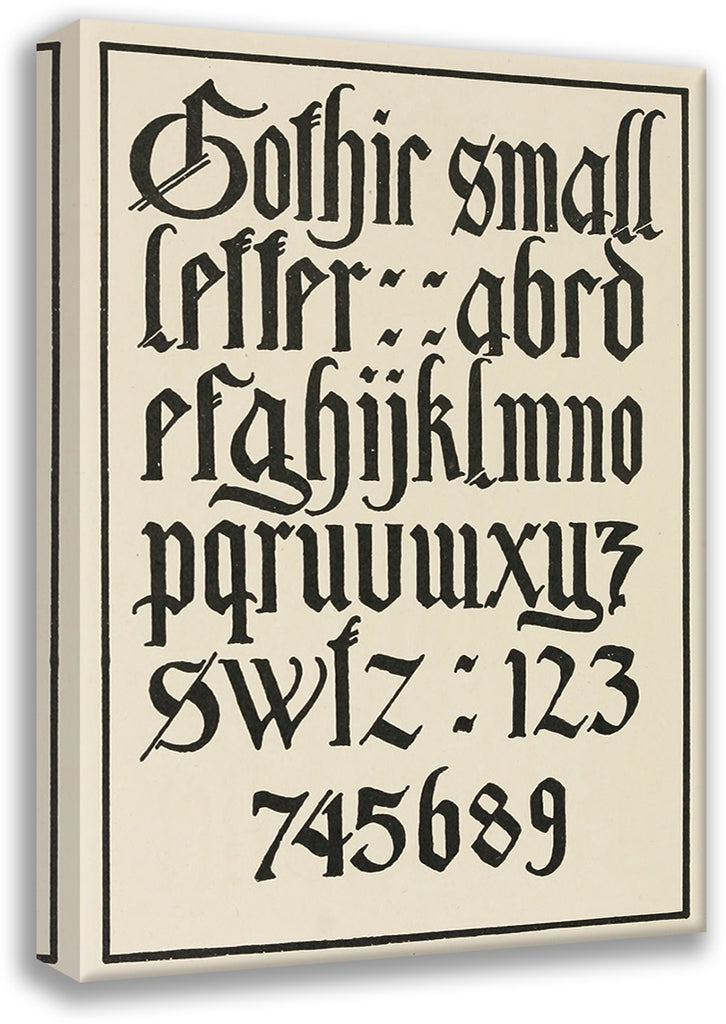 Gothic small
letter : : abcd
efghijklmno
pqruvwxyz
swtz : 123
745689